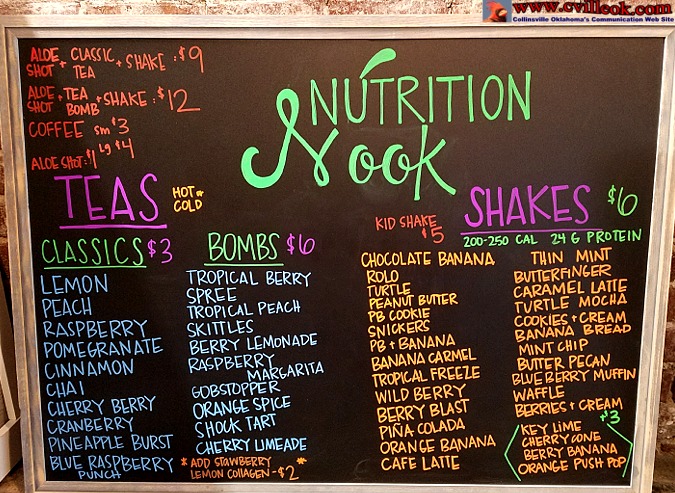 www.cvilleok.com
Collinsville Oklahoma's Communication Web Site
ALOE SHOT + CLASSIC TEA + SHAKE : $9
ALOE SHOT + TEA BOMB + SHAKE : $12
COFFEE SM $3
LG $4
ALOE SHOT: $1
NUTRITION
Nook
TEAS
HOT or
COLD
CLASSICS $3
LEMON
PEACH
RASPBERRY
POMEGRANATE
CINNAMON
CHAI
CHERRY BERRY
CRANBERRY
PINEAPPLE BURST
BLUE RASPBERRY
PUNCH
BOMBS $6
TROPICAL BERRY
SPREE
TROPICAL PEACH
SKITTLES
BERRY LEMONADE
RASPBERRY
MARGARITA
GOBSTOPPER
ORANGE SPICE
SHOCK TART
CHERRY LIMEADE
*ADD STAWBERRY *
LEMON COLLAGEN - $2
KID SHAKE
$5
SHAKES $6
200-250 CAL 24 G PROTEIN
CHOCOLATE BANANA
ROLO
TURTLE
PEANUT BUTTER
PB COOKIE
SNICKERS
PB + BANANA
BANANA CARMEL
TROPICAL FREEZE
WILD BERRY
BERRY BLAST
PIÑA COLADA
ORANGE BANANA
CAFE LATTE
THIN MINT
BUTTERFINGER
CARAMEL LATTE
TURTLE MOCHA
COOKIES + CREAM
BANANA BREAD
MINT CHIP
BUTTER PECAN
BLUEBERRY MUFFIN
WAFFLE
BERRIES + CREAM
+$3
KEY LIME
CHERRY CONE
BERRY BANANA
ORANGE PUSH POP